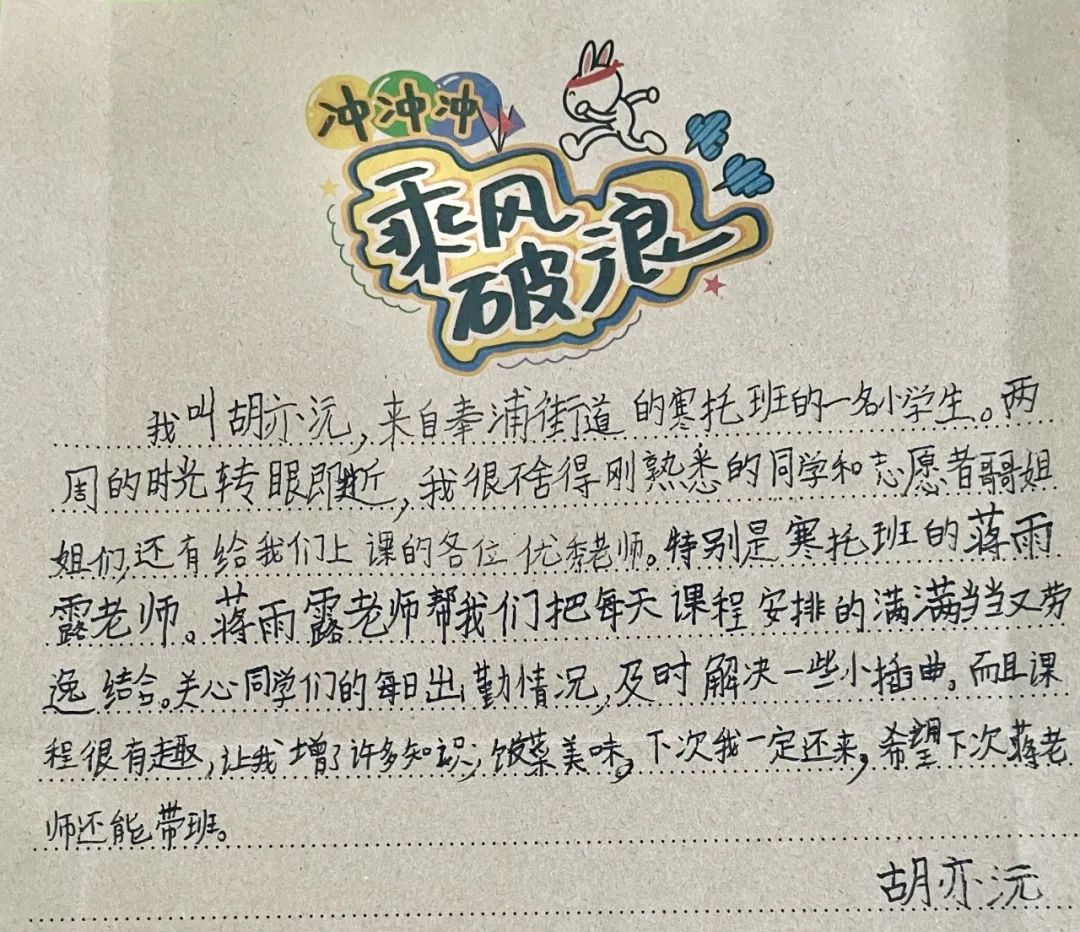 冲冲冲
乘风
破浪
我叫胡亦沅,来自奉浦街道的寒托班的一名小学生。两
周的时光转眼即逝,我很不舍得刚熟悉的同学和志愿者哥哥姐
姐们,还有给我们上课的各位优秀老师。特别是寒托班的蒋雨
露老师。蒋雨露老师帮我们把每天课程安排的满满当当又劳
逸结合。关心同学们的每日出勤情况,及时解决一些小插曲。而且课
程很有趣,让我增了许多知识;饭菜美味。下次我一定还来,希望下次蒋老
师还能带班。
胡亦沅